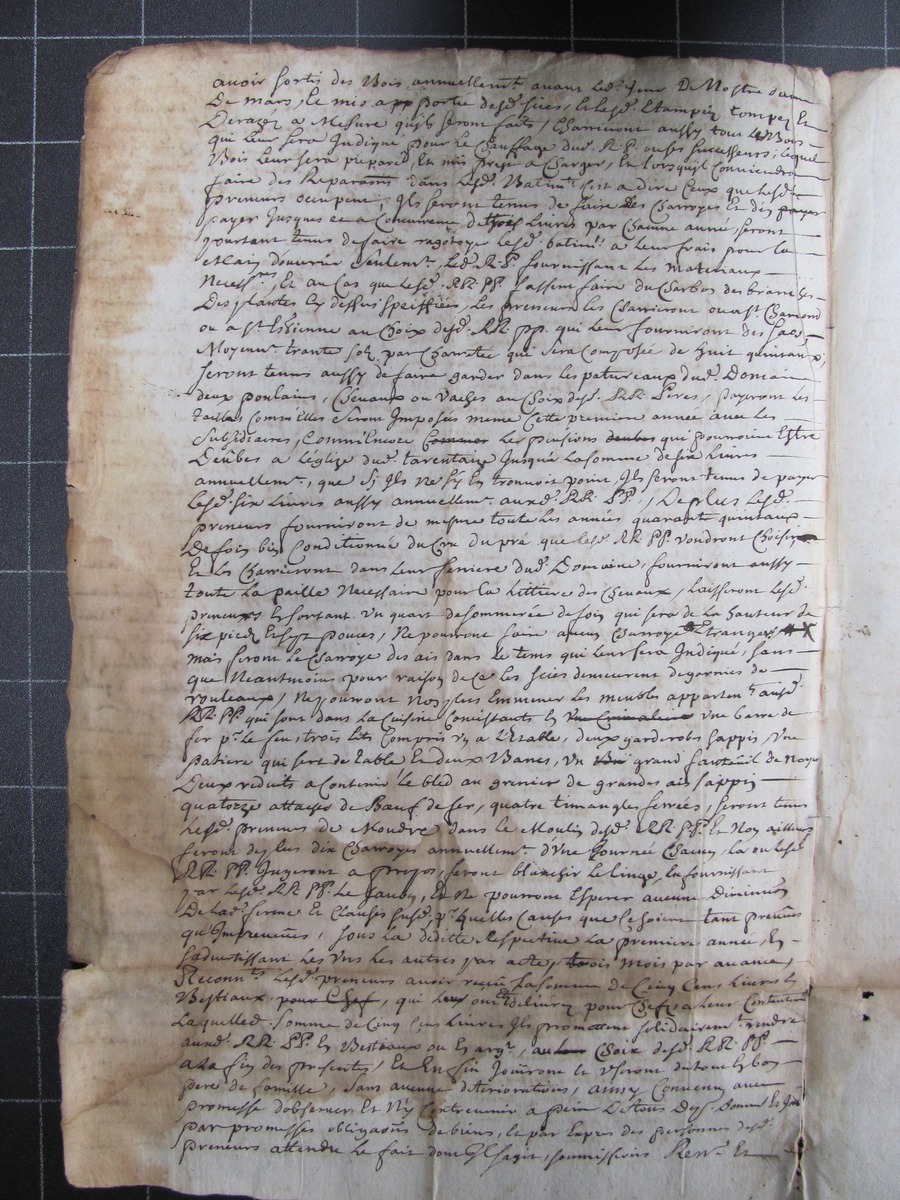 avoir sortis des Bois annuellemt. avant led. jour De Nostre dame
De mars, le mis apportee desd. scies, Et lesd. Etampiz Compez Et
Derazez a Mesure qu'ils seront faits, Charrieront aussy tout le Bois
qui leur sera Indiqué pour le Chauffage dud. R.P. ou ses successeurs, lequel
Bois leur sera préparé, Et mis prest a Charger, Et lors qu'il Conviendra
faire des Reparaons dans lesd. Batimts. c'est a dire Ceux que lesd.
preneurs occupent, Ils seront tenus de faire des Charroyes Et de
payer Jusques et a Concurrence de livres par Chacune année, seront
pourtant tenus de faire ragotoye lesd. batimts. a leur frais pour la
et lais d'ouvrié seulemt. Led. R.P. fournissant les Materiaux
Necessres, Et au Cas que lesd. RR. PP. fassent faire du Charbon des branches
Des plantes cy dessus speciffiées, les preneurs les Charrieront ou a St Chamond
ou a St Ethienne au Choix desd. RR. pp. qui leur fourniront des sacs
Moyent. trante sols par Charretée qui sera Composée de huit quintaux,
seront tenus aussy de faire garder dans les patureaux dud. Domaine
deux poulains, Chevaux ou Vaches au Choix desd. RR. Peres, payeront les
tailles Comm'elles seront Imposées meme Cette premiere année avec les
subsidiaires, Comm'Encore les pensions qui pourroint Estre
Deûbes a l'églize dud. tarentaize Jusqu'a la somme de six livres
annuellemt., que si Ils ne s'y en trouvoit point, Ils seront tenus de payer
lesd. six livres aussy annuellemt. auxd. RR. PP., De plus lesd.
preneurs fourniront de mesme toute les années quarante quintaux
De foin bien Conditionné du Cru du pré que lesd. RR. PP. voudront Choisir
Et les Charrieront dans leur feniere dud. Domaine, fourniront aussy
toute la paille Necessaire pour la littiere des Chevaux, laisseront lesd.
preneurs En sortant Un quart de sommerée de foin qui sera de la hauteur de
six pieds Et sept pouces, Ne pourront faire aucun Charroye Etranger
mais feront le Charroye des ais dans le tems qui leur sera Indiqué, sans
que Neantmoins pour raison de Ce les scies demeurent degarnies de
rouleaux, Ne pourront Non plus Emmener les meubles appartents. auxd.
RR. PP. qui sont dans la Cuisine Consistants En Une barre de
fer pr. le feu, trois lits Compris Un a l'Etable, deux garderobs sappin, Une
patiere qui sert de table Et deux Bancs, Un grand fauteuil de Noyer
Deux reduits a Contenir le bled au grenier de grandes ais sappin
quatorze attaches de Bœuf de fer, quatre timangles ferrées, seront tenus
lesd. preneurs de Moudre dans le Moulin desd. RR. PP. Et Non ailleurs
feront de plus dix Charroyes annuellemt. d'Une Journée Chacun, la ou lesd.
RR. PP. Jugeront a propos, feront blanchir le linge, En fournissant
par lesd. RR. PP. le savon, Et Ne pourront Esperer aucune Diminuon
De lad. ferme Et Clauses susd. pr. quelles Causes que Ce soient tant preveües
qu'Impreveües, sous la deditte respective la premiere année, En
s'advertissant les Uns les autres par acte, trois mois par avance,
Reconnts. lesd. preneurs avoir reçeu la somme de Cinq Cens livres En
Bestiaux pour Chef, qui ont Et delivrez pour Chef a leur Contentemt
Laquelled. somme de Cinq Cens livres Ils promettent solidairemt. rendre
auxd. RR. PP. En Bestiaux ou En argt., au Choix desd. RR. PP.
a la fin des presentes, Et En fin Joüiront Et Useront du tout En bon
pere de famille, sans aucune deteriorations, ainsy Convenu avec
promesse d'observer Et N'y Contrevenir a peine De tous Desp. Domm. Et Int.
par promesses, obligaons de biens, Et par Expres des personnes desd.
preneurs attendu le fait dont Il s'agit, soumissions Renon. Et